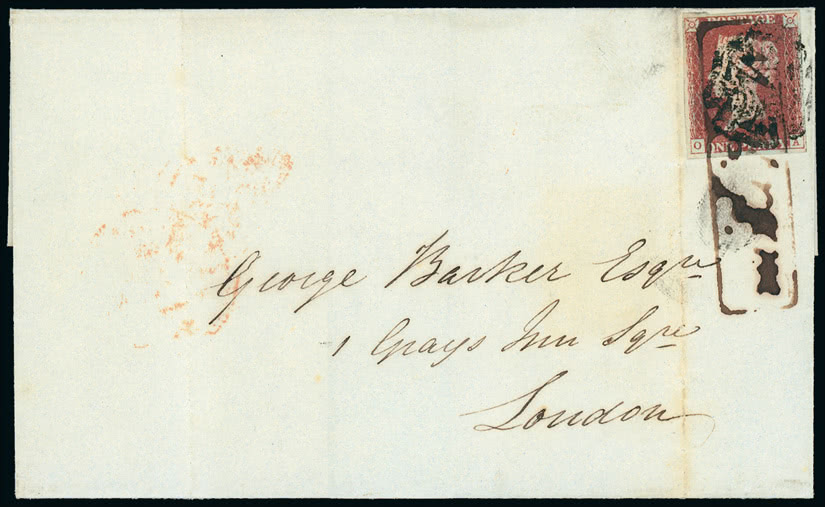 POSTAGE
O A
George Barker Esqre
1 Grays Inn Sqre
London